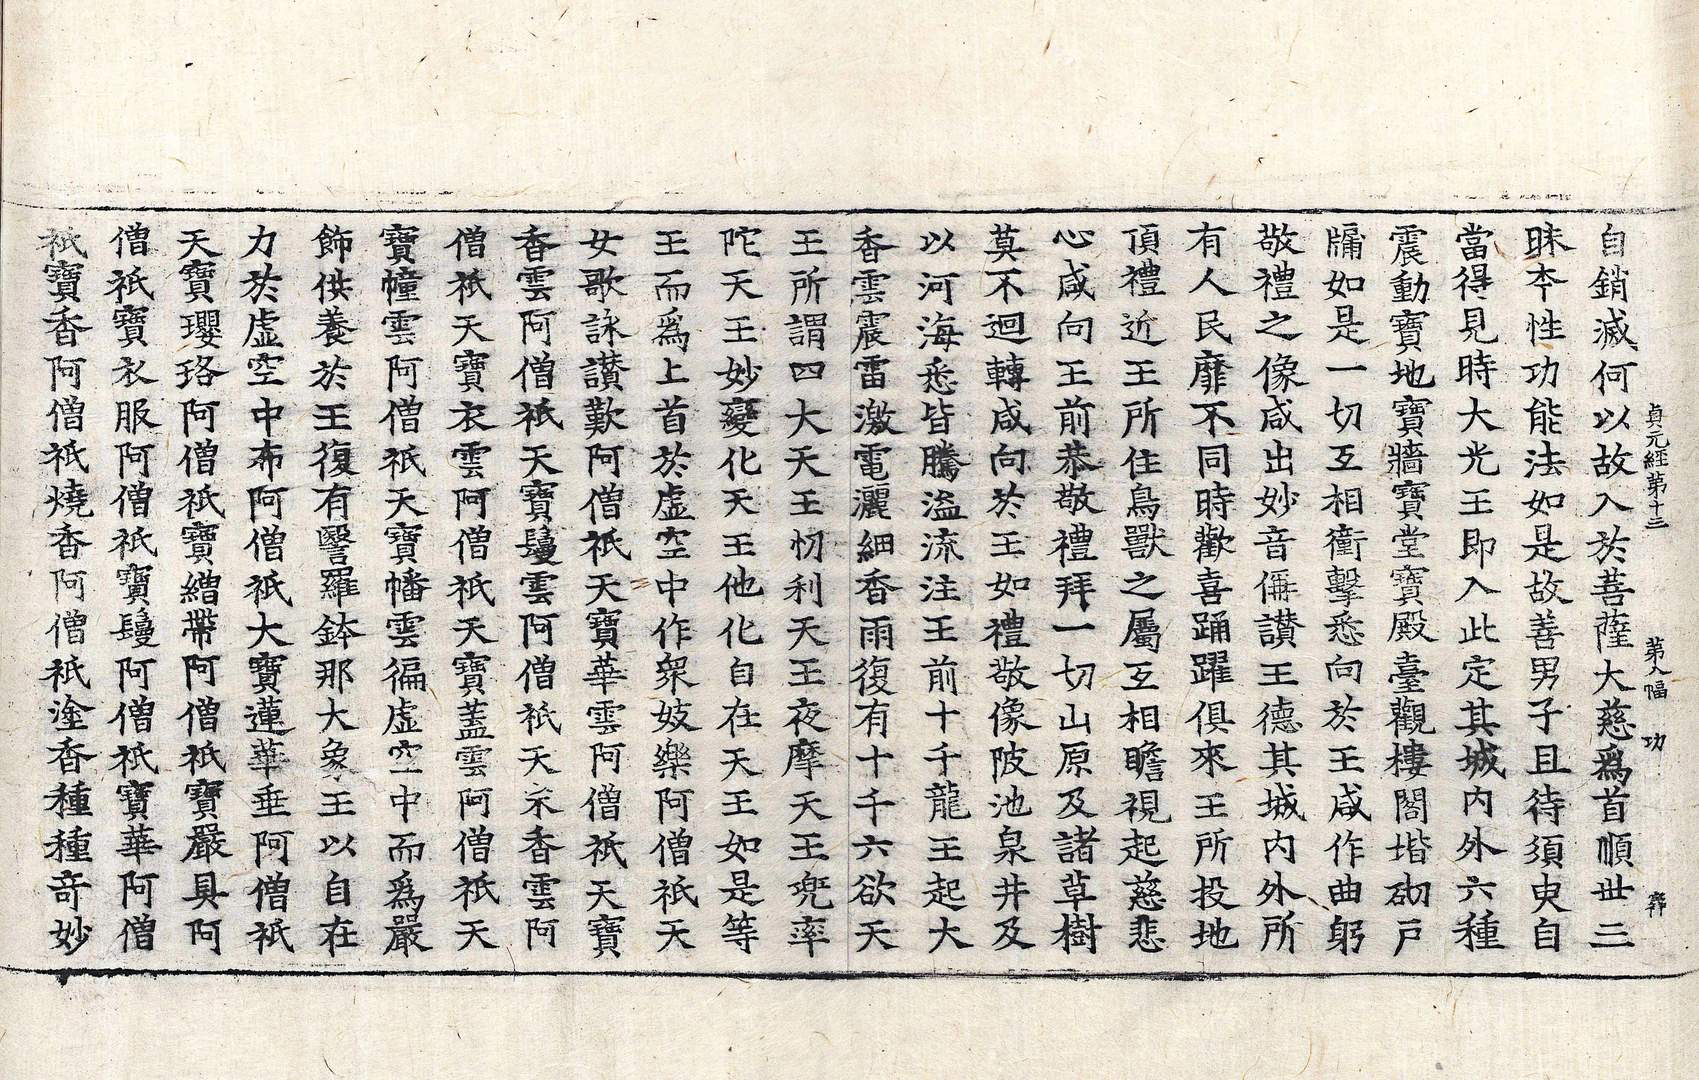 貞元經第十三 第八幅 功
自銷滅何以故入於菩薩大慈爲首順世三
昧本性功能法如是故善男子且待須臾自
當得見時大光王即入此定其城內外六種
震動寶地寶牆寶堂寶殿臺觀樓閣堦砌戶
牖如是一切互相衝擊悉向於王咸作曲躬
敬禮之像咸出妙音俱讃王德其城内外所
有人民靡不同時歡喜踊躍俱來王所投地
頂禮近王所住鳥獸之屬互相瞻視起慈悲
心咸向王前恭敬禮拜一切山原及諸草樹
莫不迴轉咸向於王如禮敬像陂池泉井及
以河海悉皆騰溢流注王前十千龍王起大
香雲震雷激電灑細香雨復有十千六欲天
王所謂四大天王忉利天王夜摩天王兜率
陀天王妙變化天王他化自在天王如是等
王而爲上首於虛空中作衆妓樂阿僧祇天
女歌詠讃歎阿僧祇天寶華雲阿僧祇天寶
香雲阿僧祇天寶鬘雲阿僧祇天末香雲阿
僧祇天寶衣雲阿僧祇天寶蓋雲阿僧祇天
寶幢雲阿僧祇天寶幡雲徧虛空中而爲嚴
飾供養於王復有瑿羅鉢那大象王以自在
力於虛空中布阿僧祇大寶蓮華垂阿僧祇
天寶瓔珞阿僧祇寶繒帶阿僧祇寶嚴具阿
僧祇寶衣服阿僧祇寶鬘阿僧祇寶華阿僧
祇寶香阿僧祇燒香阿僧祇塗香種種奇妙